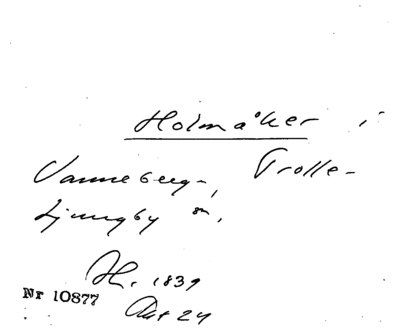 Holmåker i
Vanneberga, Trolle-
Ljungby sn.
H. 1839
Nr 10877 Akt 24